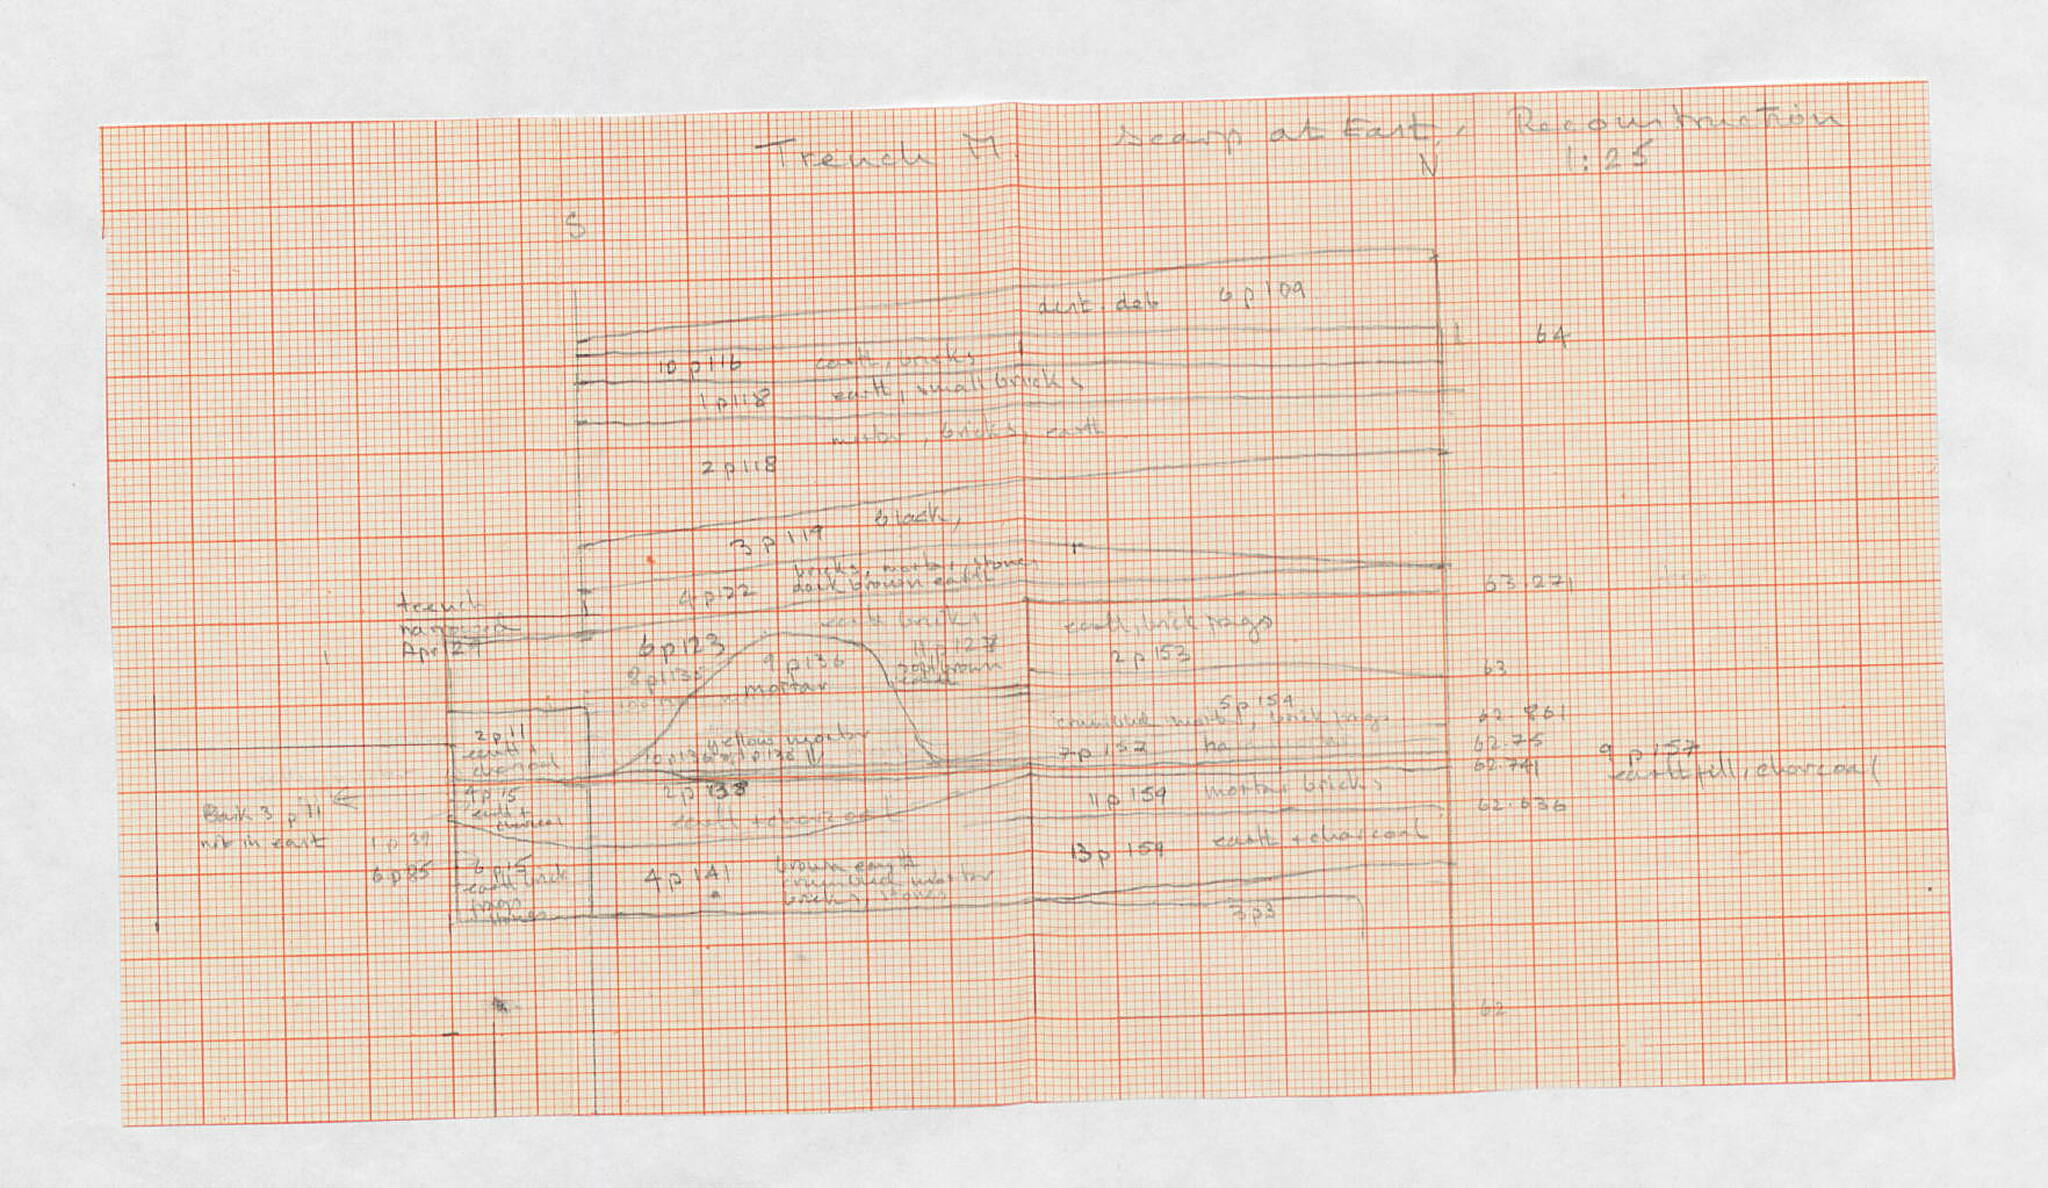 Trench M. Scarp at East. Reconstruction
N 1:25
S
dest. deb 6 p 109
64
10 p 116 earth, bricks
1 p 118 earth, small bricks
mortar, bricks, earth
2 p 118
3 p 119 black,
bricks, mortar, stones
dark brown earth
63.271
trench
narrowed
Apr 29
6 p 123
earth bricks
earth, brick frags
2 p 153
9 p 136
mortar
11 p 128
63
5 p 154
crumbled mortar, brick frags
62.861
2 p 11
earth
charcoal
yellow mortar
7 p 157
62.75
62.741
9 p 157
earth fill, charcoal
4 p 15
earth +
charcoal
2 p 138
earth + charcoal
11 p 159 mortar bricks
62.636
Baulk 3 p 11
not in east
1 p 39
6 p 85
6 p 15
earth brick
frags
stones
4 p 141
brown earth
crumbled mortar
bricks, stones
13 p 159 earth + charcoal
3 p 3
62